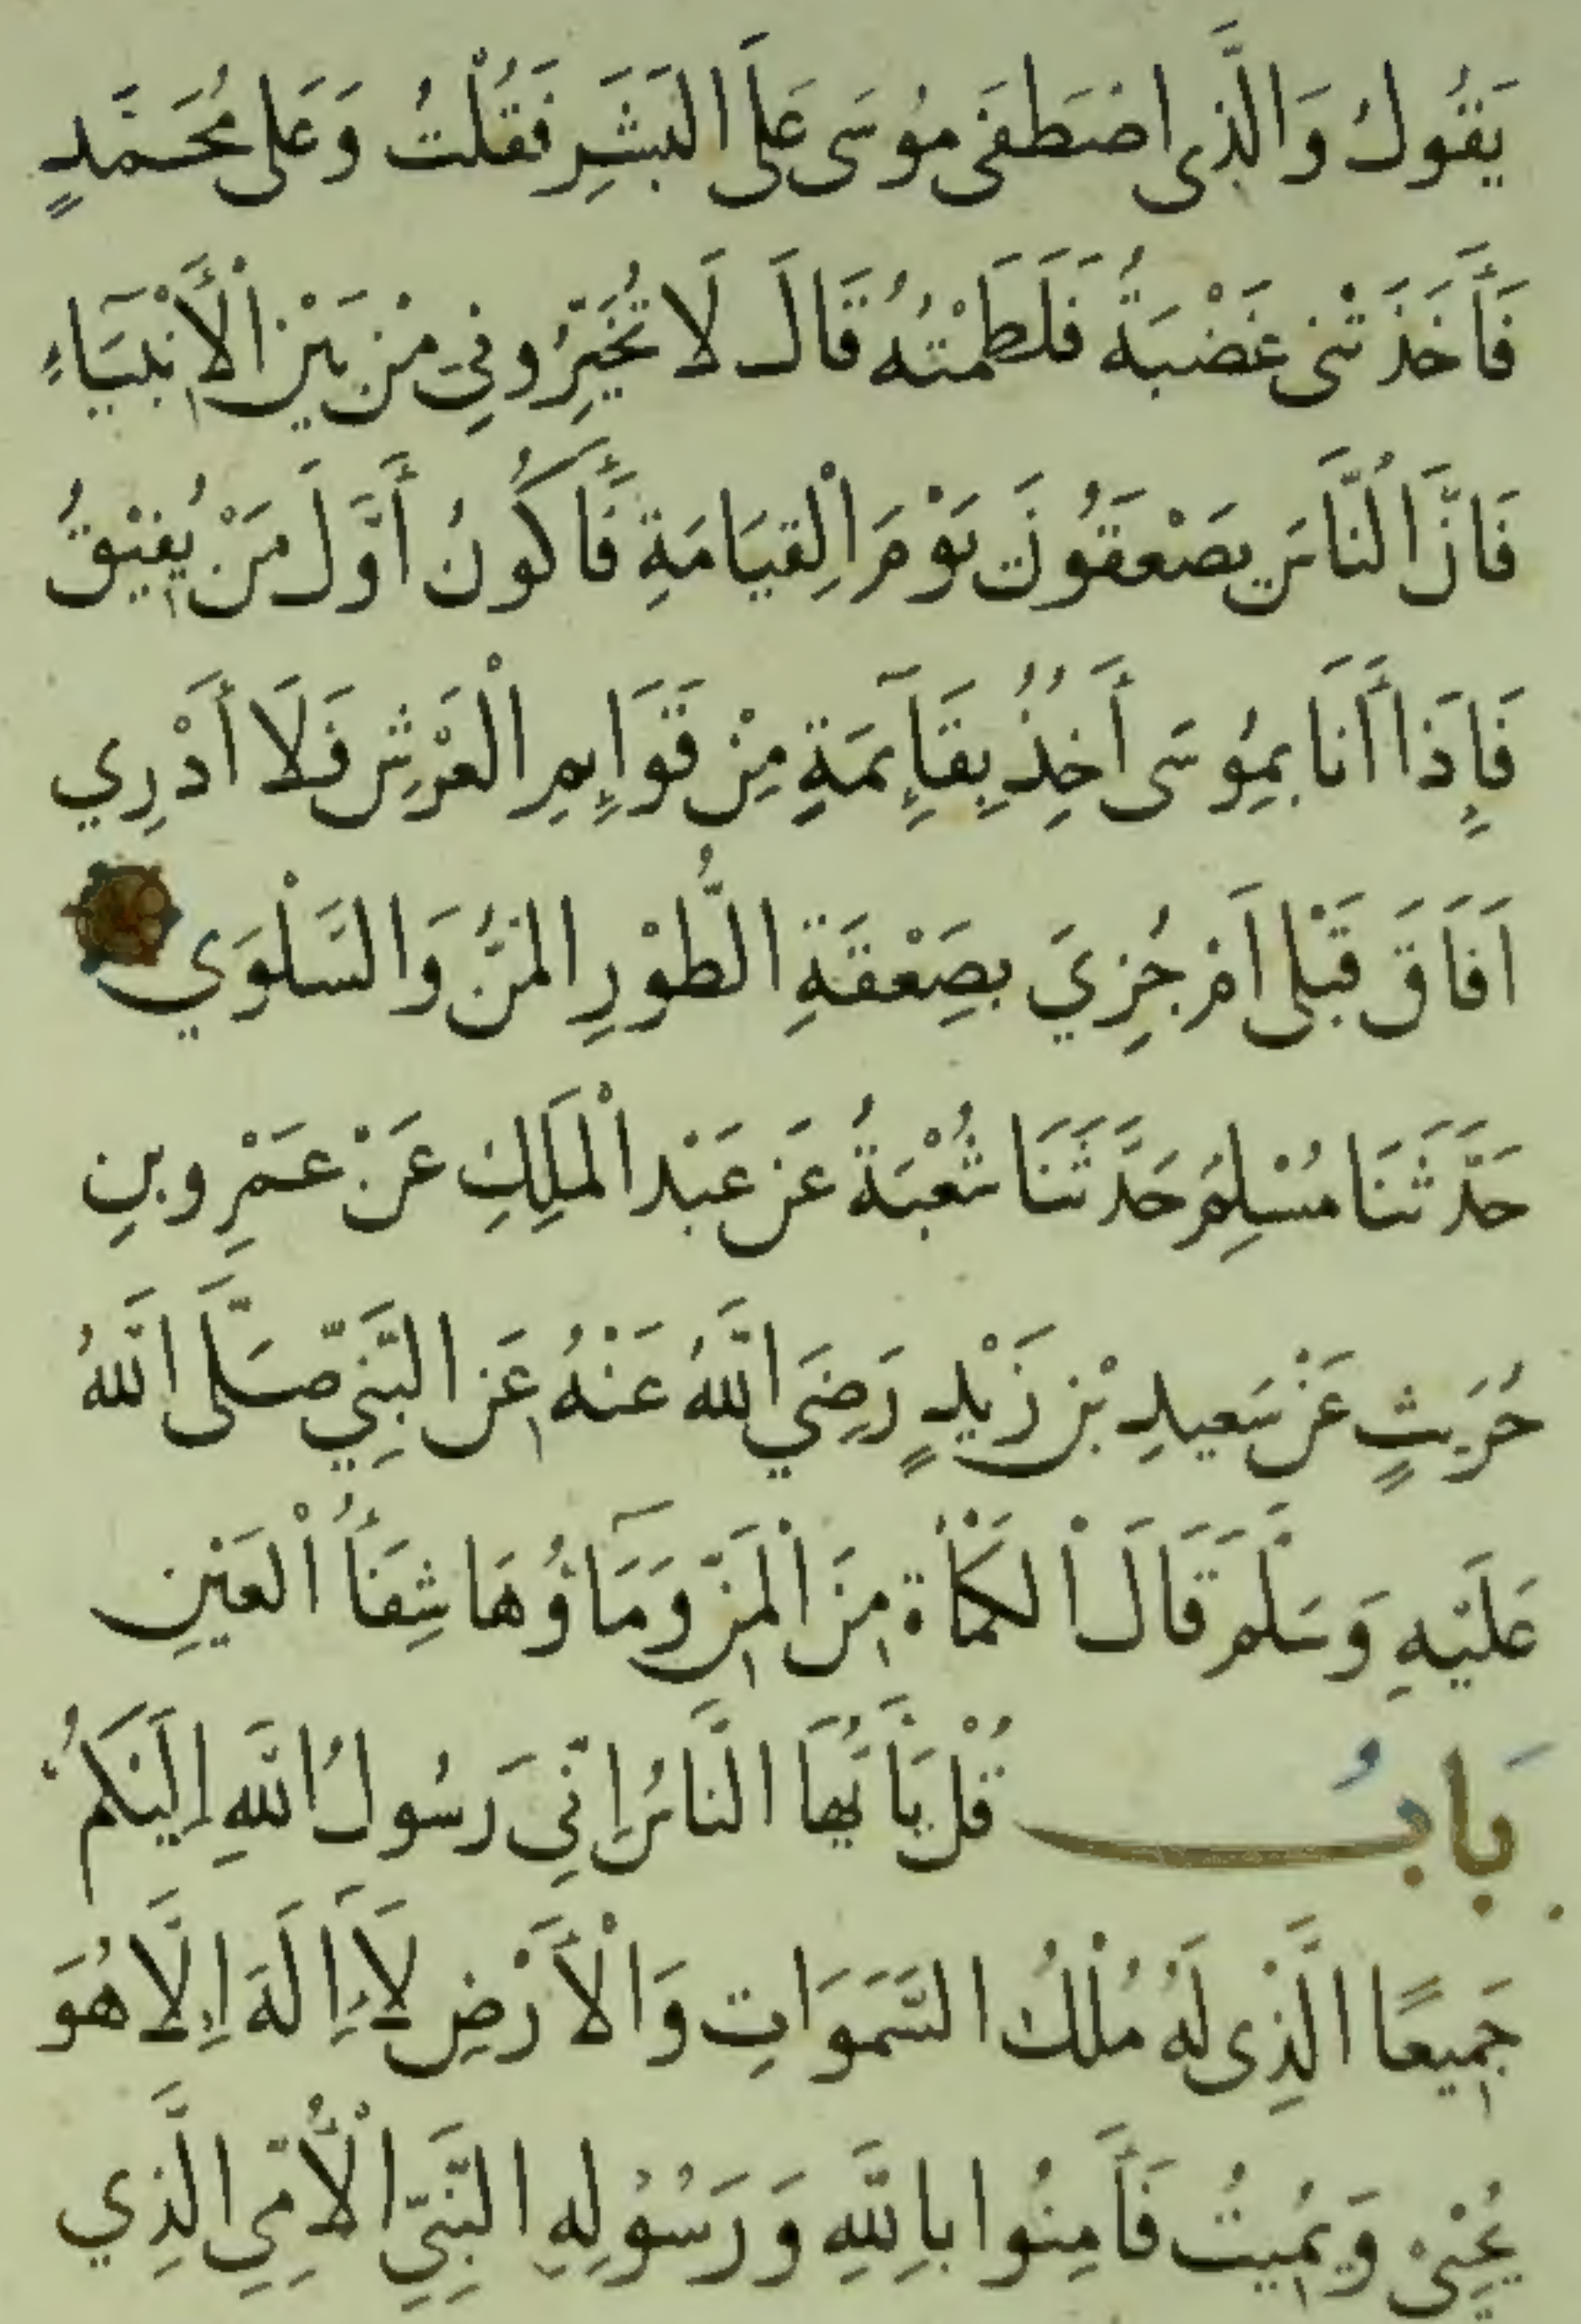 يَقُولُ وَالَّذِي اصْطَفَى مُوسَى عَلَى الْبَشَرِ فَقُلْتُ وَعَلَى مُحَمَّدٍ
فَأَخَذَتْنِي غَضْبَةٌ فَلَطَمْتُهُ قَالَ لَا تُخَيِّرُونِي مِنْ بَيْنِ الْأَنْبِيَاءِ
فَاِنَّ النَّاسَ يَصْعَقُونَ يَوْمَ الْقِيَامَةِ فَأَكُونُ أَوَّلَ مَنْ يُفِيْقُ
فَإِذَا أَنَا بِمُوسَى أَخِذٌ بِقَآئِمَةٍ مِنْ قَوَايِمِ الْعَرْشِ فَلَا أَدْرِي
اَفَاقَ قَبْلِي اَمْ جُزِيَ بِصَعْقَةِ الطُّوْرِ الْمَنُّ وَالسَّلْوَي
حَدَّثَنَا مُسْلِمٌ حَدَّثَنَا شُعْبَةُ عَنْ عَبْدِ الْمَلِكِ عَنْ عَمْرِو بنِ
حُرَيْثٍ عَنْ سَعِيدِ بْنِ زَيْدٍ رَضِيَ اللَّهُ عَنْهُ عَنِ النَّبِيِّ صَلَّى اللَّهُ
عَلَيْهِ وَسَلَّمَ قَالَ الْكَمْأَةُ مِنَ الْمَنِّ وَمَآؤُهَا شِفَأُ الْعَيْنِ
بَابُ قُلْ يَا أَيُّهَا النَّاسُ إِنِّي رَسُولُ اللَّهِ إِلَيْكُمْ
جَمِيعًا الَّذِي لَهُ مُلْكُ السَّمَوَاتِ وَالْأَرْضِ لَا إِلَهَ اِلَّا هُوَ
يُحْيِيْ وَيُمِيتُ فَأَمِنُوا بِاللَّهِ وَرَسُوْلِهِ النَّبِيِّ الْأُمِّيِّ الَّذِي